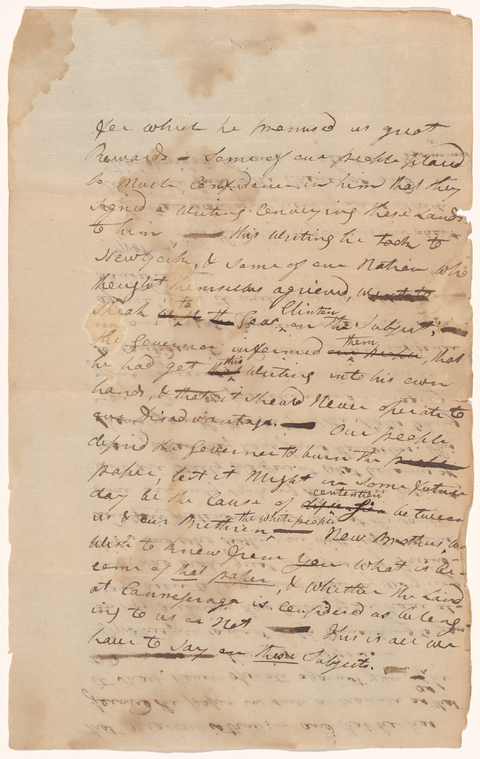 for which he promised us great
Rewards - Some of our people placed
so much Confidence in him that they
signed a Writing Conveying these Lands
to him — this Writing he took to
New York, & some of our Nation who
thought themselves agrieved,
speak to Gov. Clinton on the Subject. —
The Governor informed them, that
he had got this Writing into his own
hands, & that it should Never operate to
our Disadvantage. — Our people
desired the Governor to burn the
paper, lest it Might in some future
day be the Cause of contention between
us & our Brethren the white people — Now Brother, we
wish to know from You what is be-
come of that paper, & whether the Land
at Cannesraga is considered as belong-
ing to us or Not — This is all we
have to say on these Subjects.